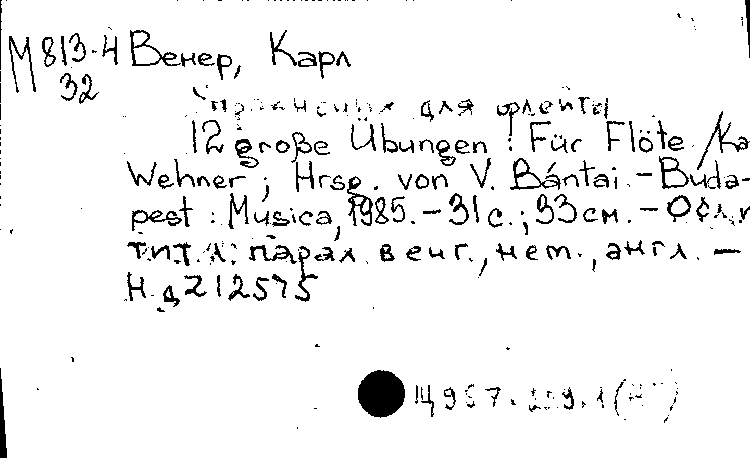 М 813-4 Венер, Карл
32
для флейты
12 große Übungen : Für Flöte / Ka
Wehner ; Hrsg. von V. Bántai. - Buda-
pest : Musica, 1985. - 31 с.; 33 см. - Обл.,
тит. л.: парал. венг., нем., англ. -
Н. д 212575
Щ 957.